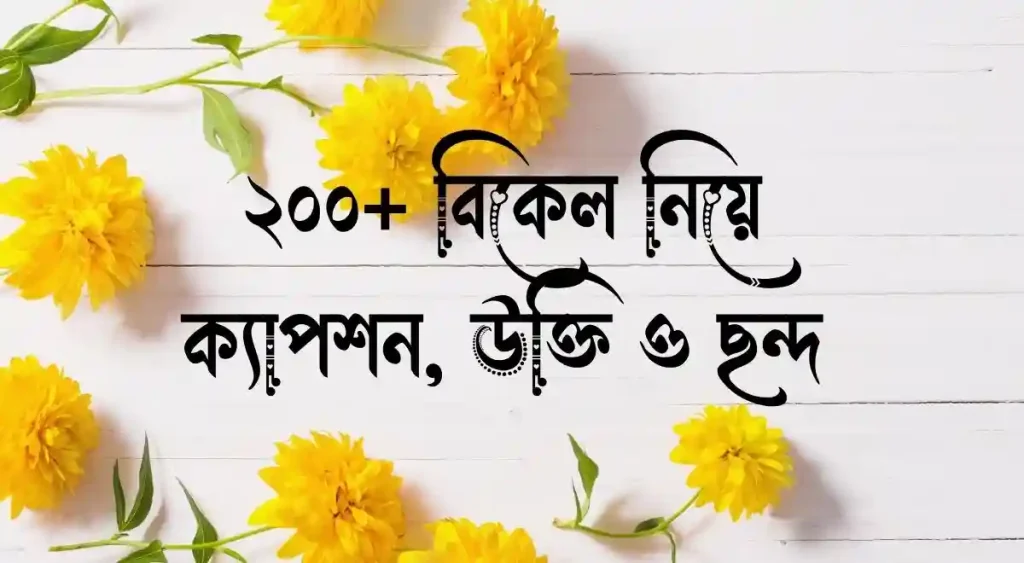 ২০০+ বিকেল নিয়ে
ক্যাপশন, উক্তি ও ছন্দ